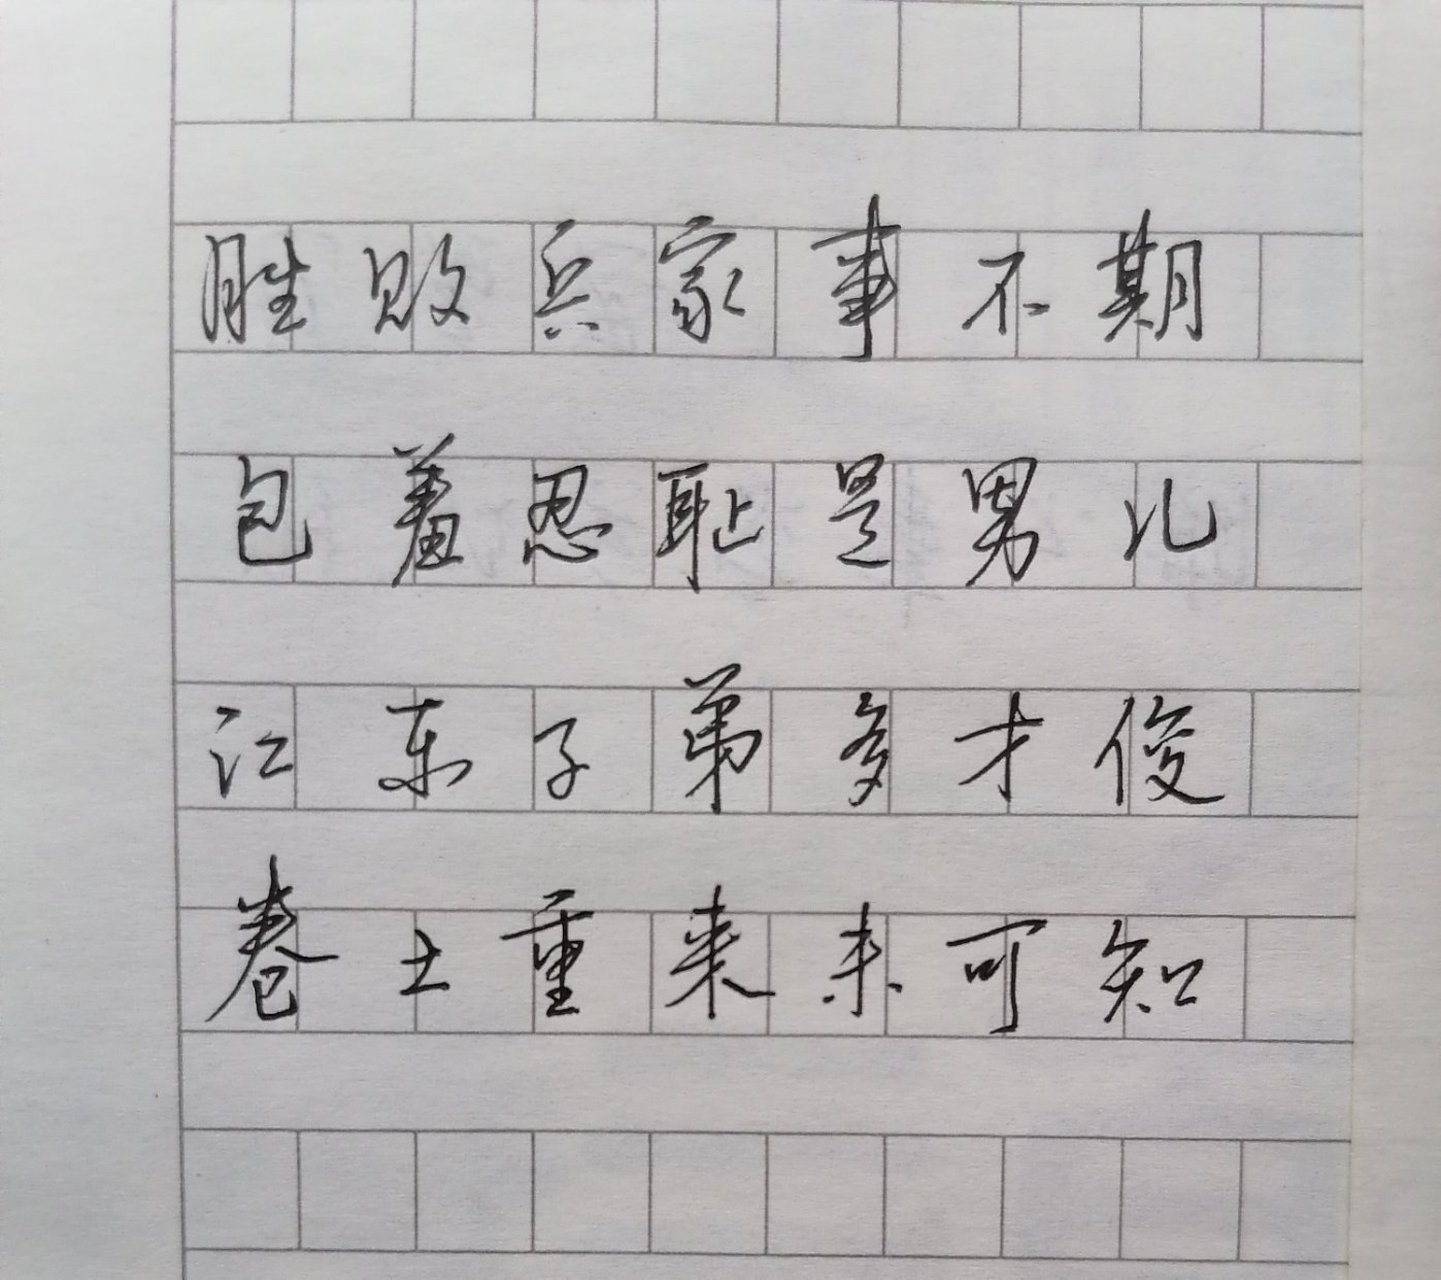 胜败兵家事不期
包羞忍耻是男儿
江东子弟多才俊
卷土重来未可知